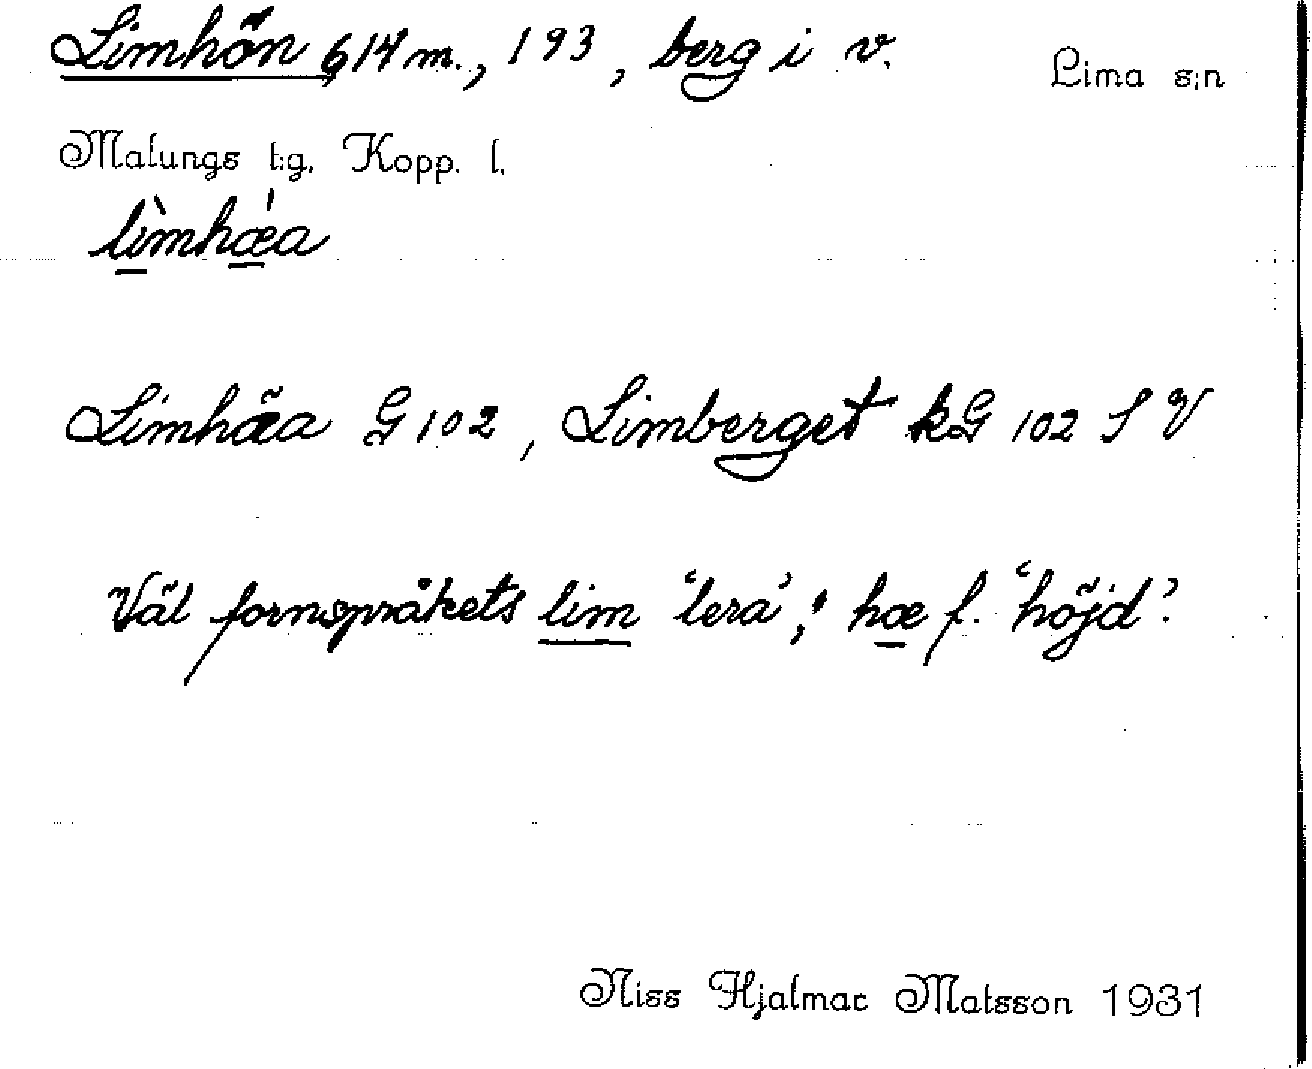 Limhön 614 m., 193, berg i v. Lima s;n
Malungs t:g. Kopp. l.
lìmhǽa
Limhäa G 102, Limberget kG 102 S V
Väl fornspråkets lim 'lera'; hæ f. 'höjd'.
Niss Hjalmar Matsson 1931